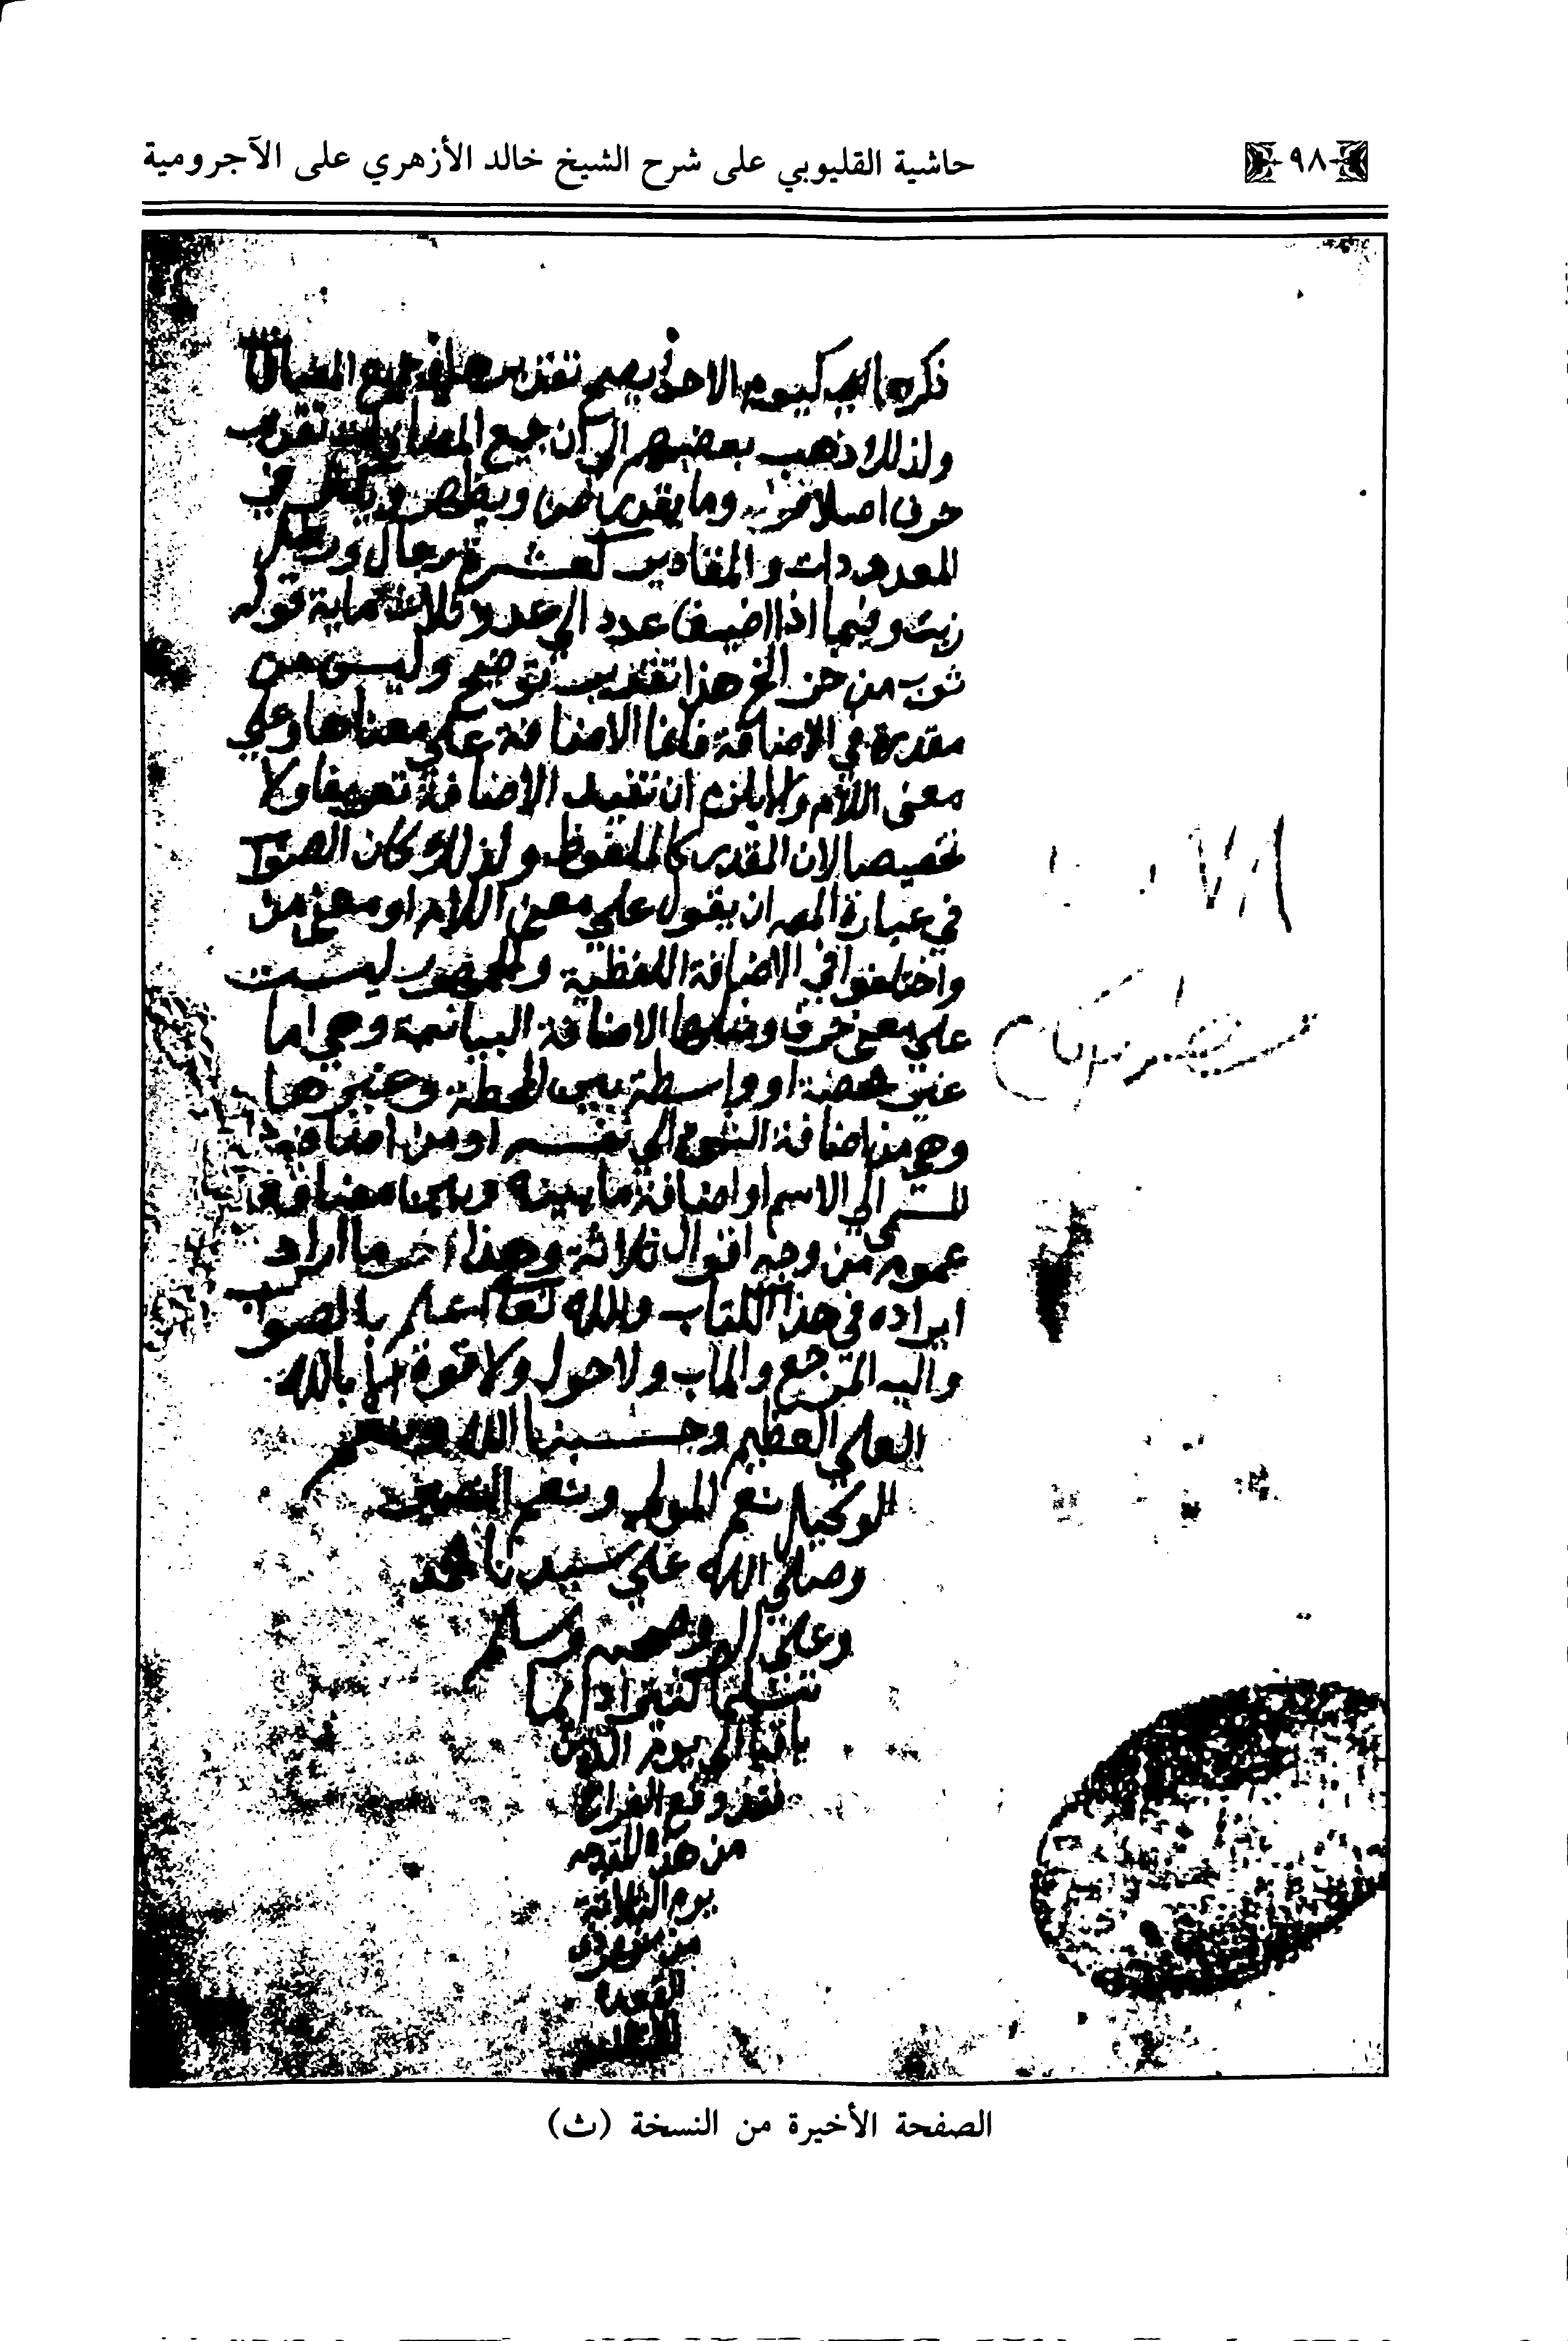 حاشية القليوبي على شرح الشيخ خالد الأزهري على الآجرومية
٩٨
ذكره كيوم الاحد يصح جميع
ولذلك ذهب بعضهم الي ان جميع تقدير
حرف اصلا وما يقدر من ويظهر في
المعدودات والمقادير كعشرة رجال ورطل
زيت وفيما اذا اضيف عدد الي عدد قوله
ثوب من خز الخ هذا تقدير توضيح وليس من
مقدرة في الاضافة فانما الاضافة علي معناها وعلي
معنى اللام ولا يلزم ان تفيد الاضافة تعريفا ولا
تخصيصا لان المقدر كالملفوظ ولذلك كان الصواب
في عبارة المص ان يقول علي معنى اللام او معنى من
واختلفوا في الاضافة اللفظية والجمهور ليست
علي معنى حرف ومثلها الاضافة البيانية وهي اما
غير محضة او واسطة بين المحضة وغيرها
وهي من اضافة الشيء الي نفسه او من اضافة
المسمى الي الاسم او اضافة ما بينه وبين
عموم من وجه اقوال ثلاثة وهذا اخر ما اراد
ايراده في هذا الكتاب والله تعالى اعلم بالصواب
واليه المرجع والماب ولا حول ولا قوة الا بالله
العلي العظيم وحسبنا الله ونعم
الوكيل نعم المولى ونعم النصير
وصلى الله علي سيدنا محمد
وعلى اله وصحبه وسلم
تسليما كثيرا دايما
باقيا الي يوم الدين
وقع الفراغ
من هذا
يوم
من
القعدة
الصفحة الأخيرة من النسخة (ث)